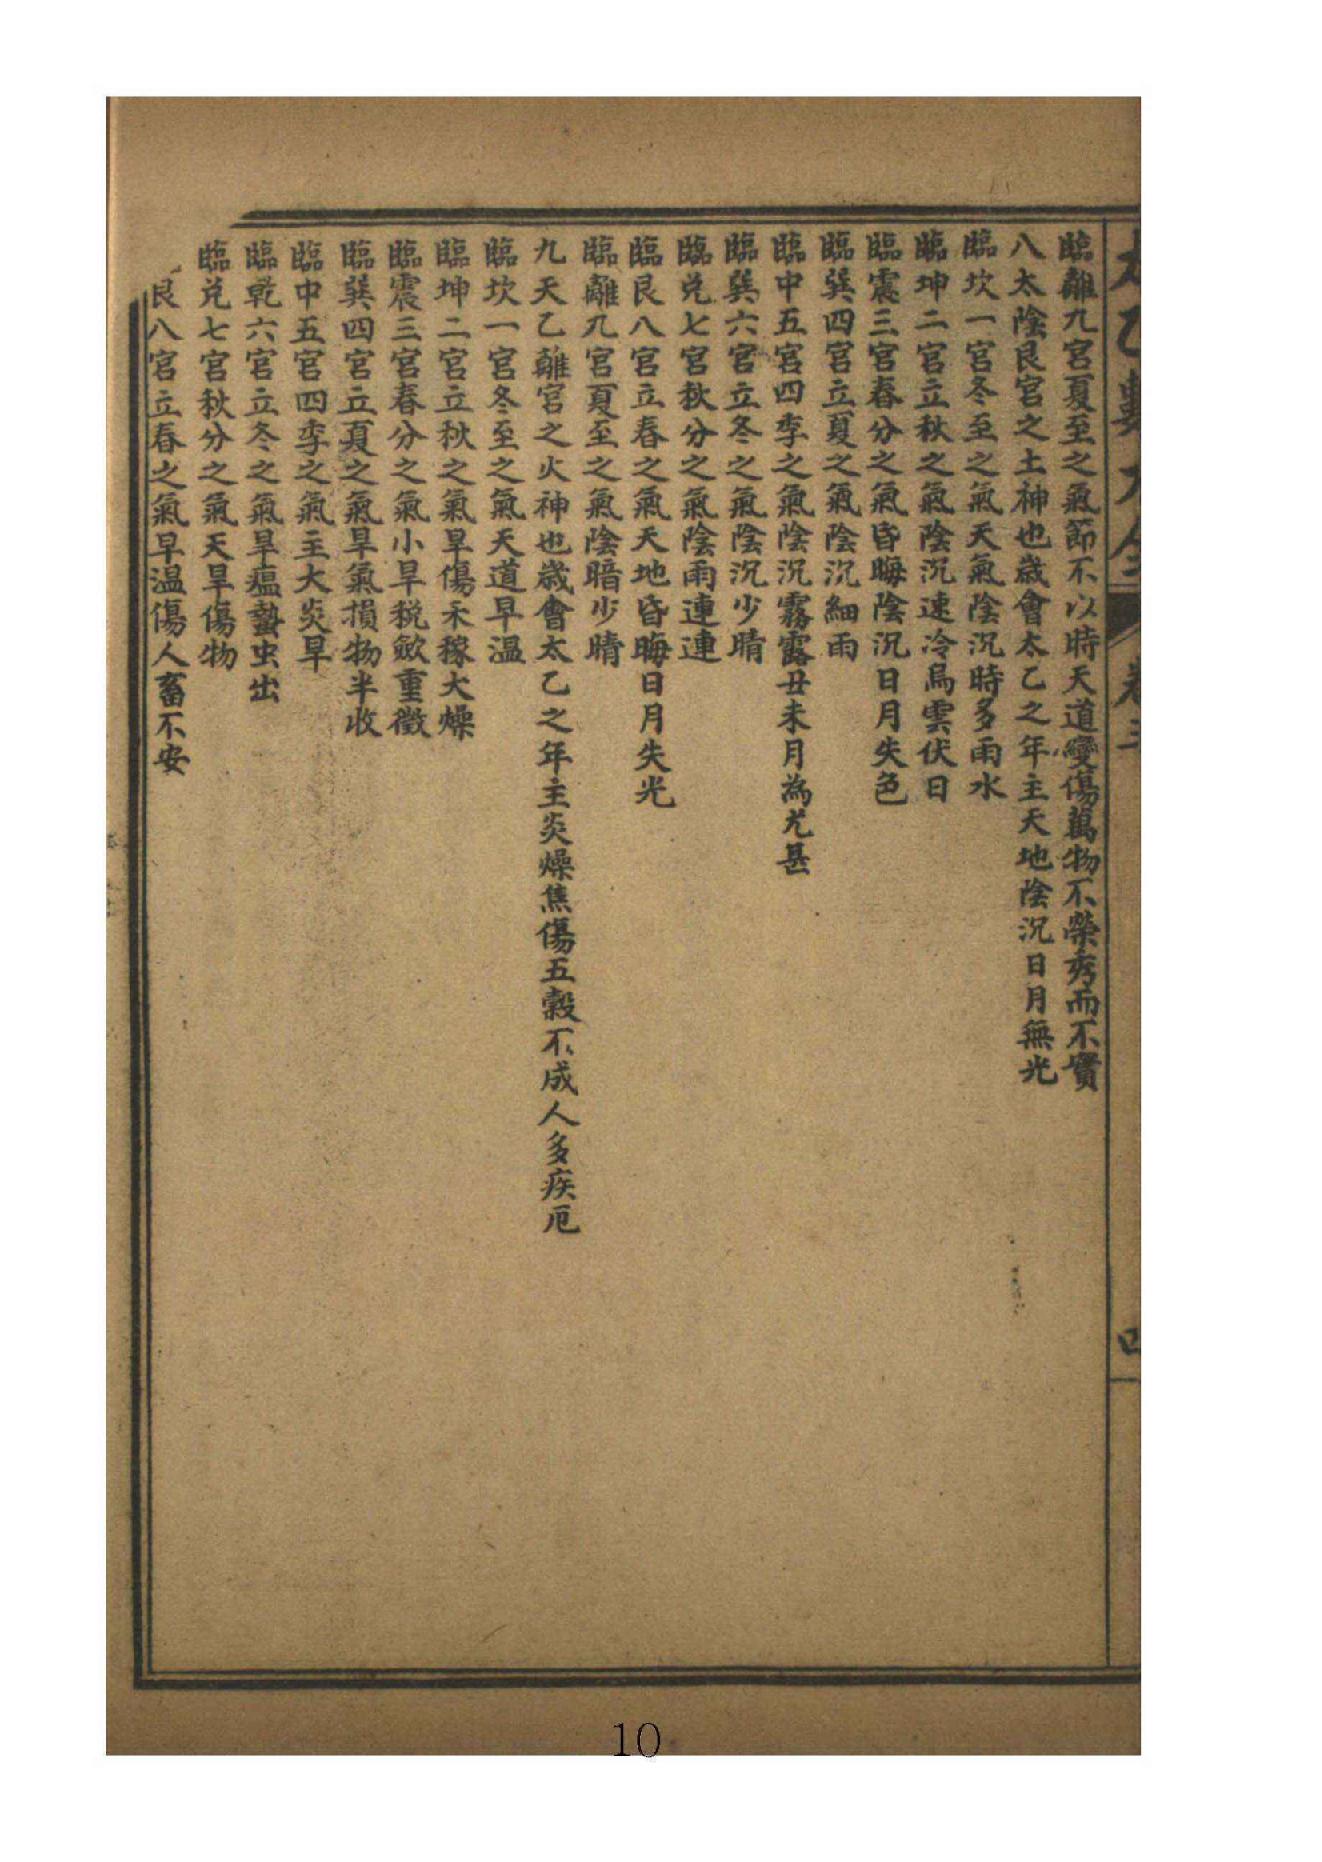 太乙數大全 卷三 四
臨離九宮夏至之氣節不以時天道變傷萬物不榮秀而不實
八太陰艮宮之土神也歲會太乙之年主天地陰沉日月無光
臨坎一宮冬至之氣天氣陰沉時多雨水
臨坤二宮立秋之氣陰沉速冷烏雲伏日
臨震三宮春分之氣昏晦陰沉日月失色
臨巽四宮立夏之氣陰沉細雨
臨中五宮四季之氣陰沉霧露丑未月為尤甚
臨巽六宮立冬之氣陰沉少晴
臨兌七宮秋分之氣陰雨連連
臨艮八宮立春之氣天地昏晦日月失光
臨離九宮夏至之氣陰暗少晴
九天乙離宮之火神也歲會太乙之年主炎燥焦傷五穀不成人多疾厄
臨坎一宮冬至之氣天道旱温
臨坤二宮立秋之氣旱傷禾稼大燥
臨震三宮春分之氣小旱稅斂重徵
臨巽四宮立夏之氣旱氣損物半收
臨中五宮四季之氣主大炎旱
臨乾六宮立冬之氣旱瘟蟄虫出
臨兌七宮秋分之氣天旱傷物
艮八宮立春之氣旱温傷人畜不安
10